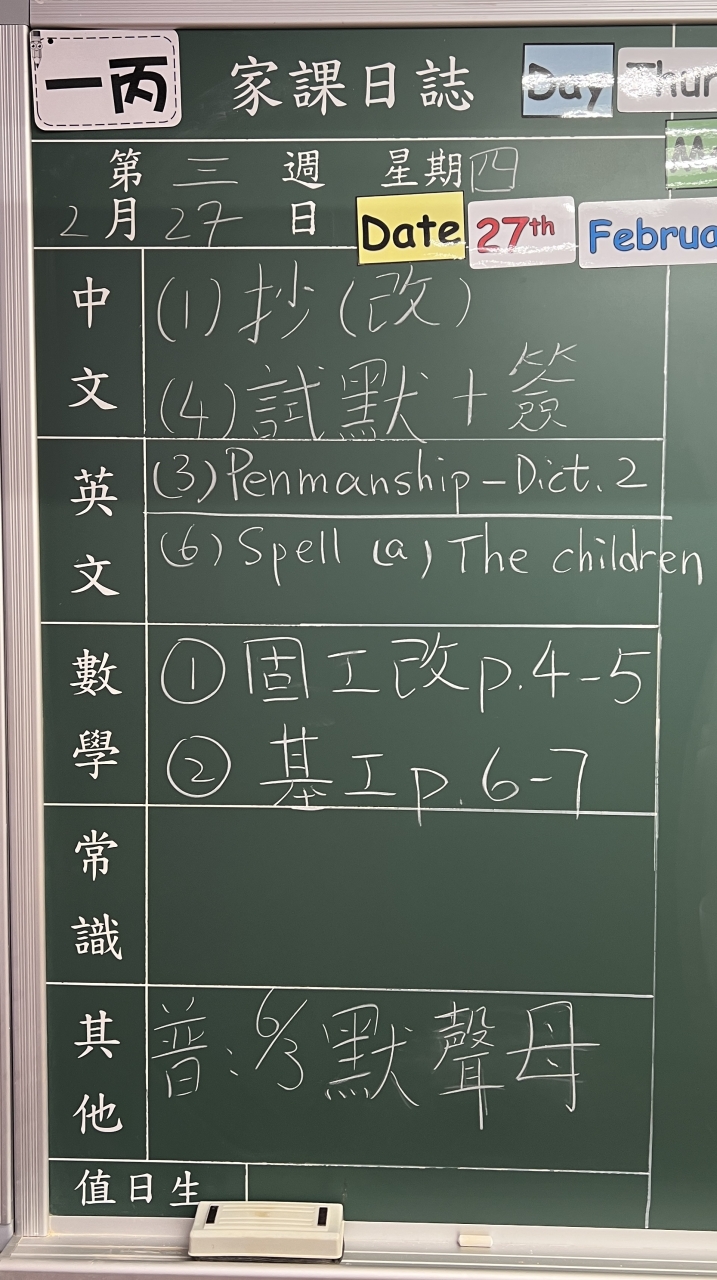 一丙 家課日誌 Day Thur
第 三 週 星期四
2月27日 Date 27th Februa
中文 (1) 抄(改)
(4) 試默+簽
英文 (3) Penmanship-Dict. 2
(6) Spell (a) The children
數學 ① 固工改p.4-5
② 基工p.6-7
常識
其他 普:6/3默聲母
值日生